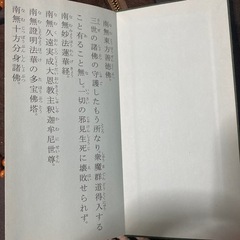 南無東方善徳佛。
三世の諸佛の守護したもう所なり。衆魔群道得入する
こと有ること無し。一切の邪見生死に壊敗せられず。
南無妙法蓮華経。
南無久遠実成大恩教主釈迦牟尼世尊。
南無證明法華の多宝佛塔。
南無十方分身諸佛。